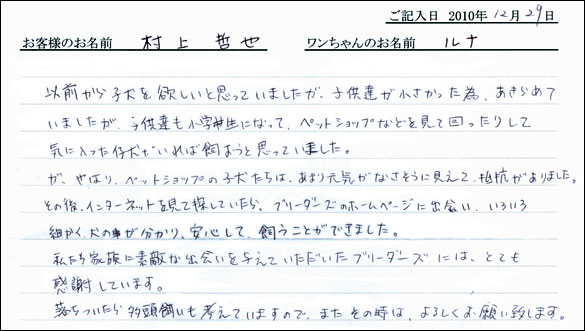 ご記入日 2010年 12月 29日
お客様のお名前 村上 哲也 ワンちゃんのお名前 ルナ
以前から子犬を欲しいと思っていましたが、子供達が小さかった為、あきらめて
いましたが、子供達も小学生になって、ペットショップなどを見て回ったりして
気に入った仔犬がいれば飼おうと思っていました。
が、やはり、ペットショップの子犬たちは、あまり元気がなさそうに見えて、抵抗がありました。
その後、インターネットを見て探していたら、ブリーダーズのホームページに出会い、いろいろ
細かく犬の事が分かり、安心して、飼うことができました。
私たち家族に素敵な出会いを与えていただいたブリーダーズには、とても
感謝しています。
落ちついたら多頭飼いも考えていますので、またその時は、よろしくお願い致します。